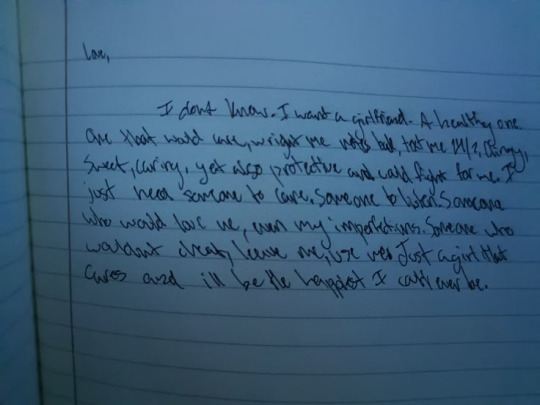 Love,
I dont know. I want a girlfriend. A healthy one.
One that would care, wright me notes back, text me 24/2, Clingy,
Sweet, Caring, yet also protective and would fight for me. I
just need someone to care, Someone to listen Someone
who would love me, even my imperfections. Someone who
wouldnt cheat, leave me, use me. Just a girl that
Cares and ill be the happiest I could ever be.